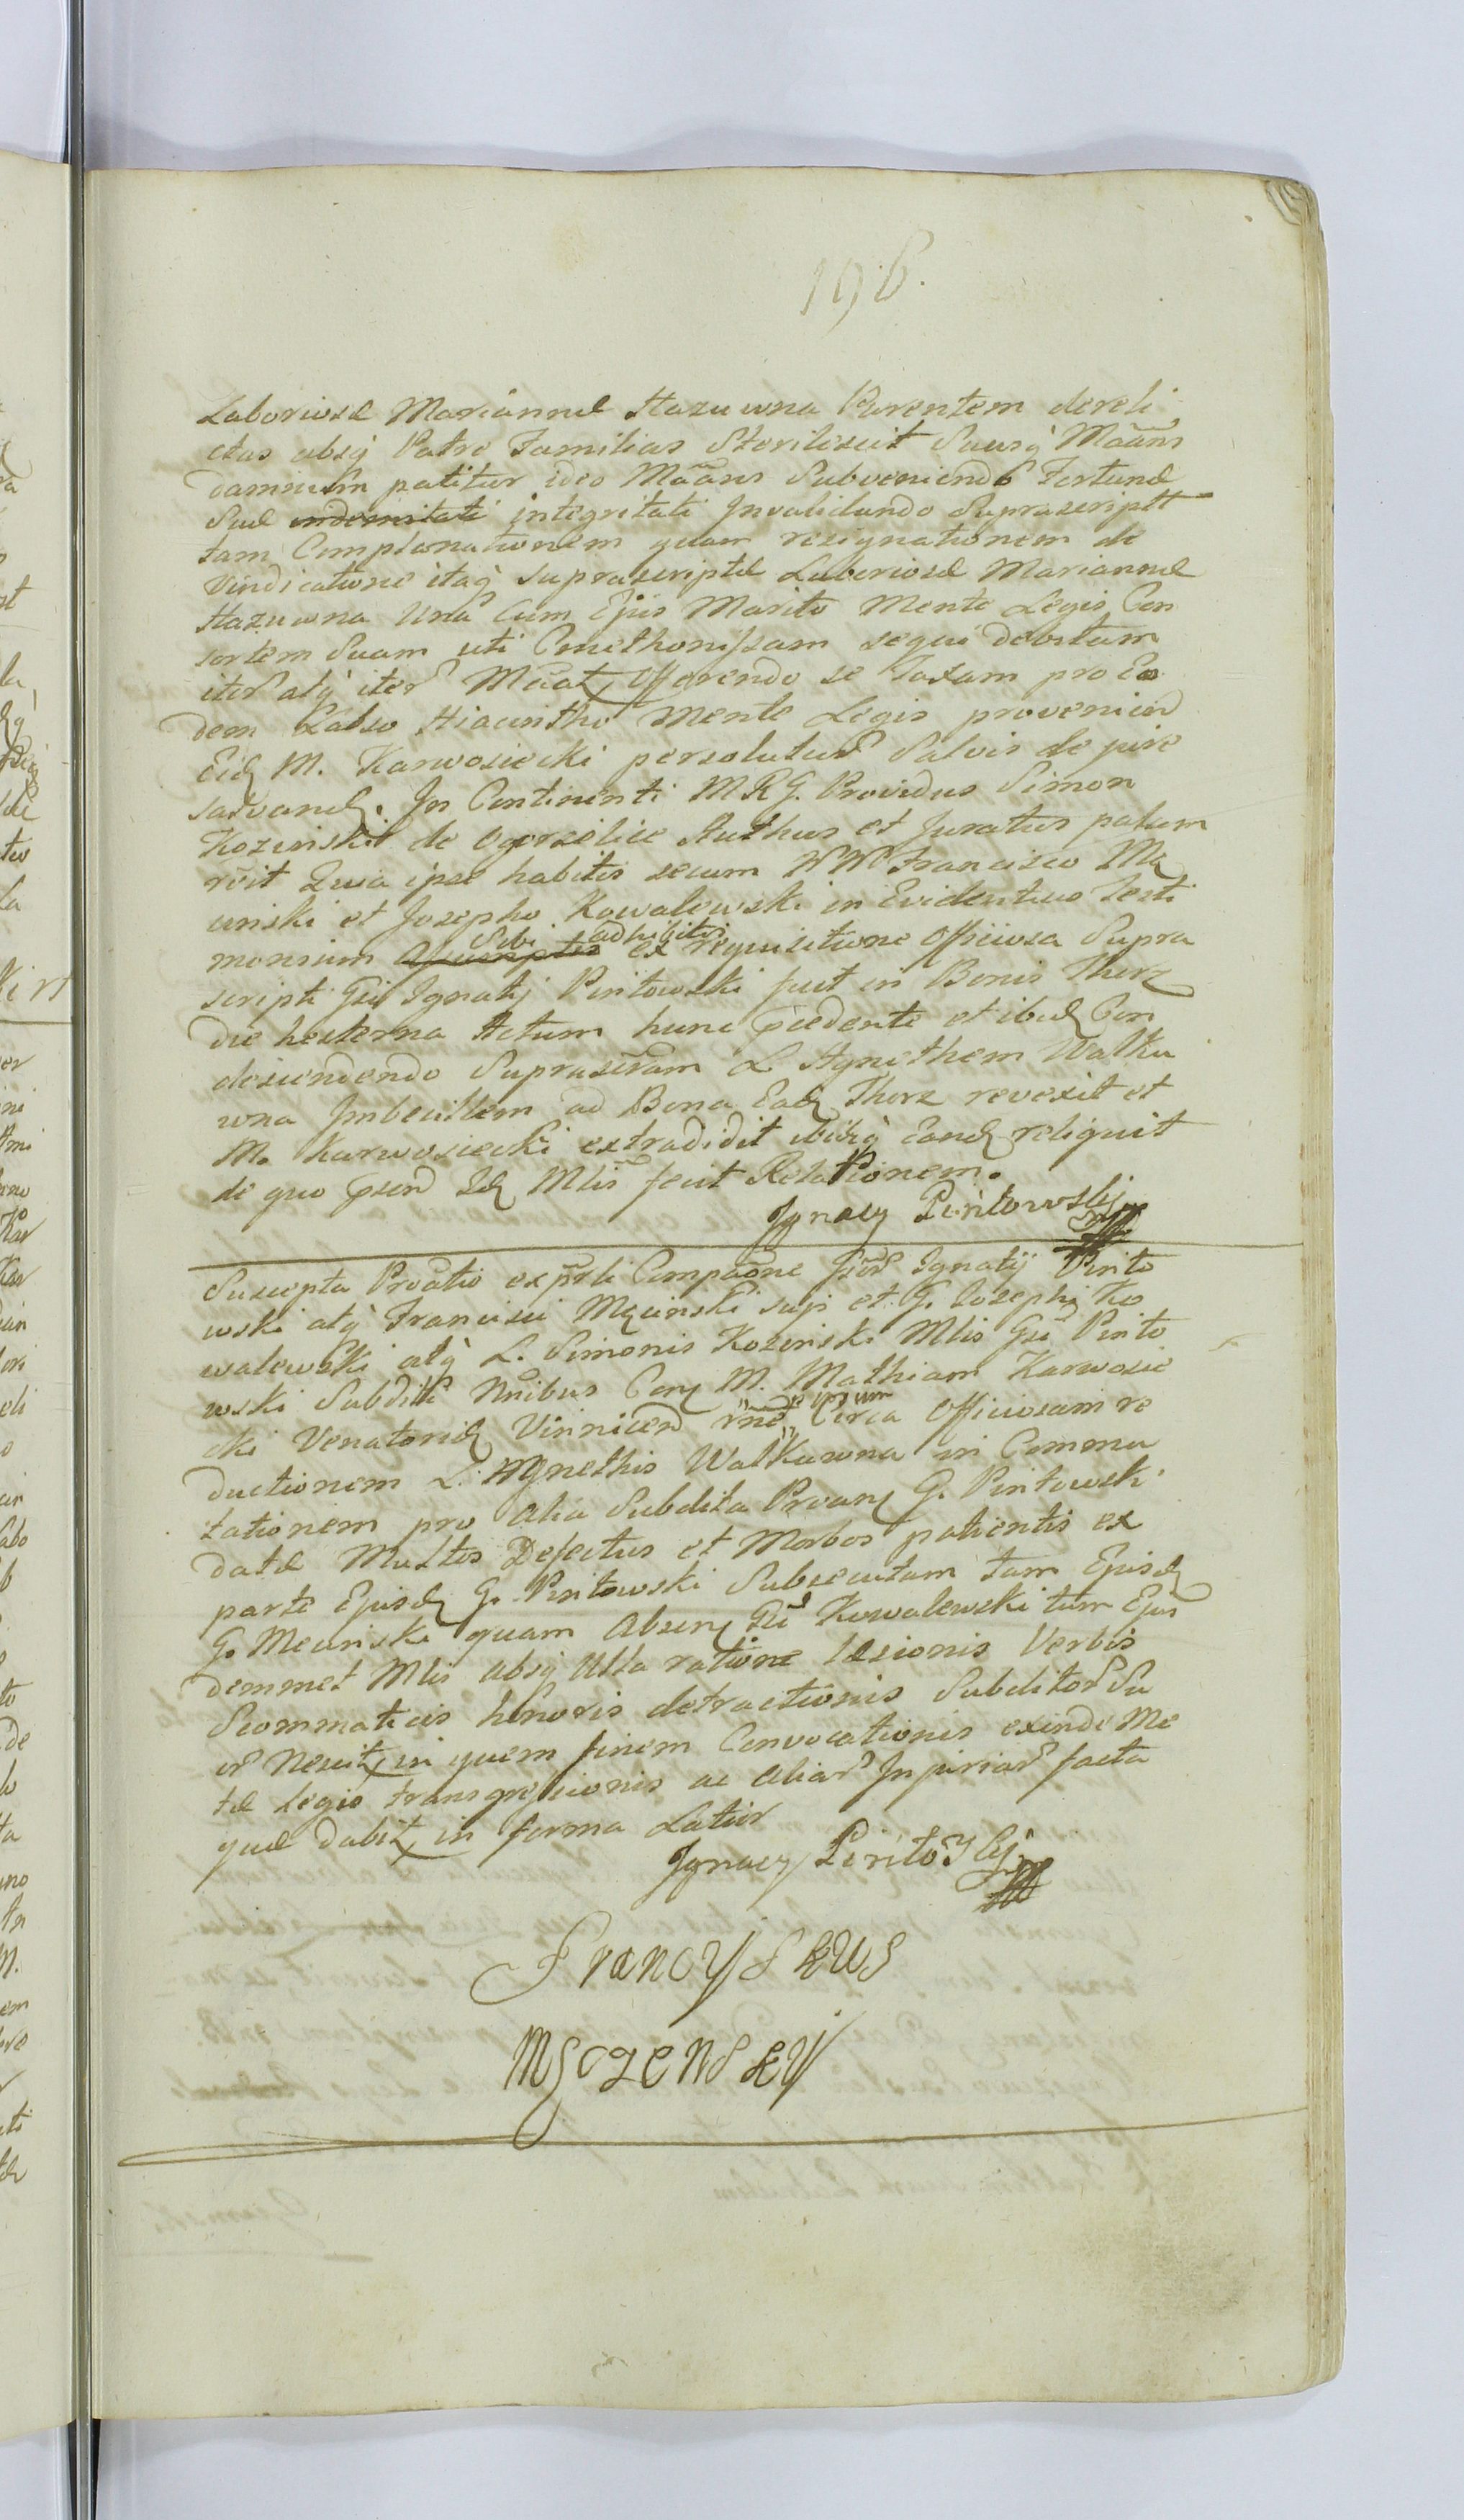 196.
Laboriosæ Mariannæ Stazuwna Parentem dereli
ctas absq Patre Familias Sterilescit Suusq Mããns
damnum patitur ideo Mããns Subveniendo Fortunæ
Suæ indemitati integritati Invalidando Suprascriptt
tam Complanationem quam resignationem de
Vindicatione itaq suprascriptæ Laboriosæ Mariannæ
Stazuwna Una Cum Ejus Marito Mente Legis Con
sortem Suam uti Cmethonissam sequi debitam
iter atq iter Mãat, Offerendo se Taxam pro Ea
dem Labso Hiacintho Mente Legis provenien
Eid M. Karwosiecki persolutur Salvis de jure
salvand. In Continenti MRG. Providus Simon
Kozinski de Ogorzelice Ruthus et Juratus palam
rcit Quia ipse habitis secum NN Francisco Mę
cinski et Josepho Kowalewski in Evidentius Testi
monium Sibi adhibitis ex requisitione Officiosa Supra
scripti Gsi Ignatij Pintowski fuit in Bonis Thorz
die hesterna Actum hunc pcedente et ibid Con
descendendo Suprascram L Agnethem Walku
wna Imbecillem ad Bona Ead Thorz revexit et
M. Karwosiecki extradidit ibiq Eand reliquit
de quo psen Id Mlis fecit Relationem.
Ignacy Pintowskj mp
Suscepta Provatio ex psti Compaone Gsor Ignatij Pinto
wski atq Francisci Męcinski supi et G. Josephi Ko
walewski atq L. Simonis Kozinski Mlis Gsi Pinto
wski Subditi Nnibus Con M. Mathiam Karwosie
cki Venatorid Vinnicen rne ipsum Circa Officiosam re
ductionem L. Agnethis Walkuwna in Commu
tationem pro alia Subdita Provan G. Pintowski
datæ Multos Defectus et Morbos patientis ex
parte Ejusd G. Pintowski Subsecutam tam Ejusd
G. Mecinski quam Absen Gsi Kowalewski tum Ejus
demmet Mlis absq Ulla ratione læsionis Verbis
Scommaticis honoris detractionis Subditor Su
or Nescit, in quem finem Convocationis exinde Me
tæ legis transgressionis ac aliar Injuriar facta
quæ dabit, in forma Latior
Ignacy Pintoskj mp
Francyskus
Męczenskÿ